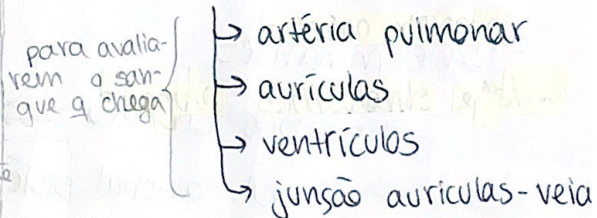 para avalia-
rem o san-
gue q chega
artéria pulmonar
aurículas
ventrículos
junção aurículas-veia